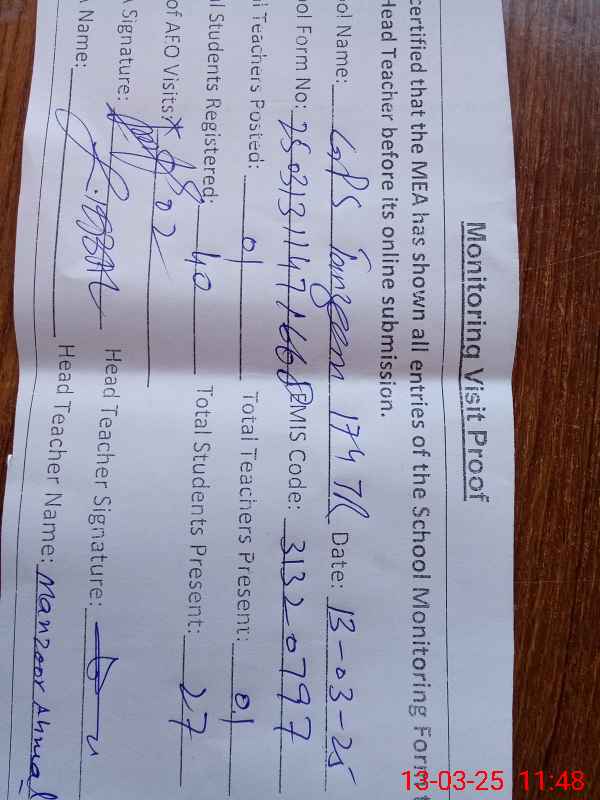 Monitoring Visit Proof
certified that the MEA has shown all entries of the School Monitoring Form t
Head Teacher before its online submission.
ol Name: GPS Tanzeem 174 TR Date: 13-03-25
ol Form No: EMIS Code: 31320797
l Teachers Posted: 01 Total Teachers Present: 01
l Students Registered: 40 Total Students Present: 27
of AEO Visits: 02
Signature: Head Teacher Signature:
Name: Head Teacher Name: Manzoor Ahmad
13-03-25 11:48